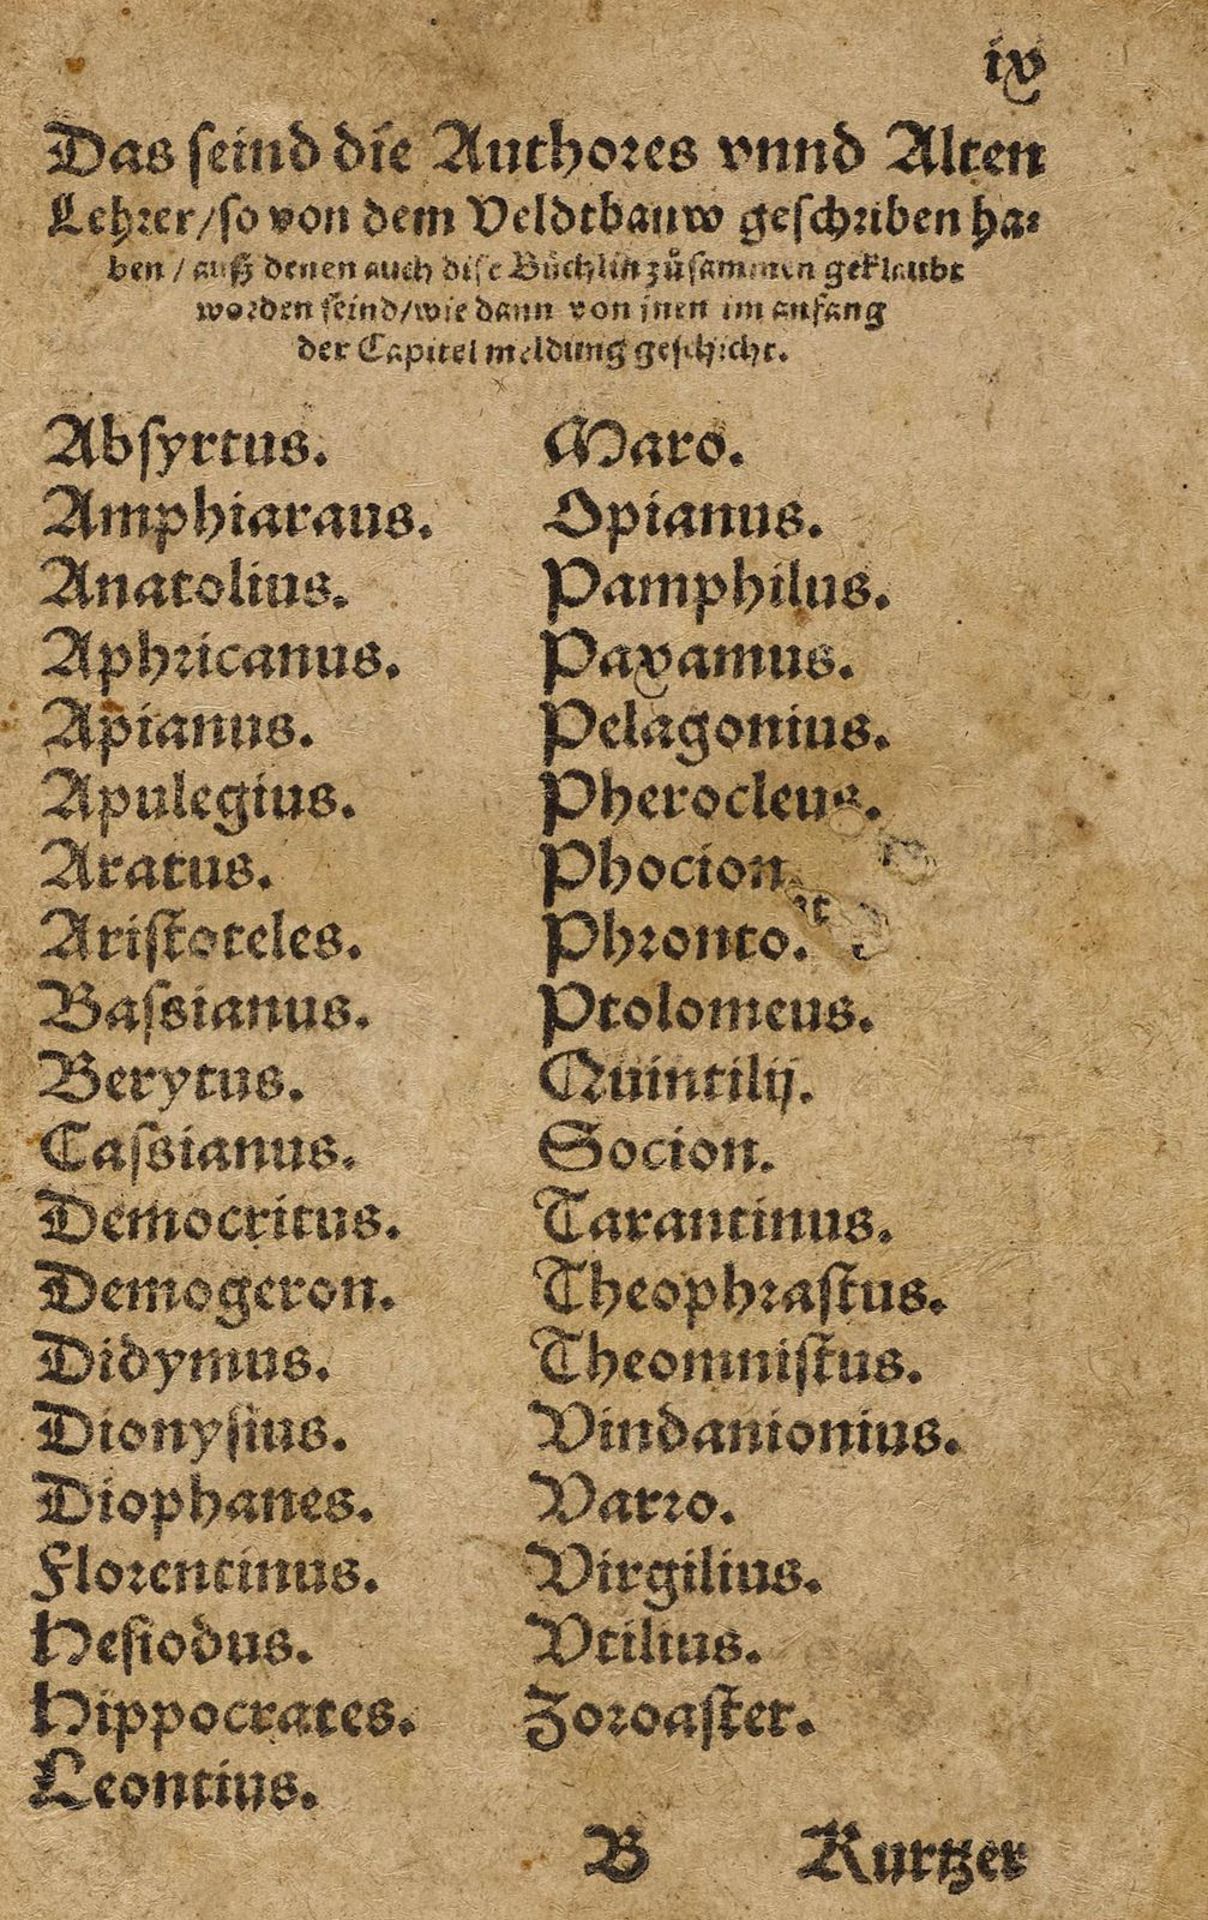 ix
Das seind die Authores vnnd Alten
Lehrer/so von dem Veldtbauw geschriben ha⸗
ben / auß denen auch dise Büchlin zůsammen geklaubt
worden seind/wie dann von jnen im anfang
der Capitel meldung geschicht.
Absyrtus.
Amphiaraus.
Anatolius.
Aphricanus.
Apianus.
Apulegius.
Aratus.
Aristoteles.
Bassianus.
Berytus.
Cassianus.
Democritus.
Demogeron.
Didymus.
Dionysius.
Diophanes.
Florentinus.
Hesiodus.
Hippocrates.
Leontius.
Maro.
Opianus.
Pamphilus.
Paxamus.
Pelagonius.
Pherocleus.
Phocion
Phronto.
Ptolomeus.
Quintilij.
Socion.
Tarantinus.
Theophrastus.
Theomnistus.
Vindanionius.
Varro.
Virgilius.
Vtilius.
Zoroaster.
B Kurtzer